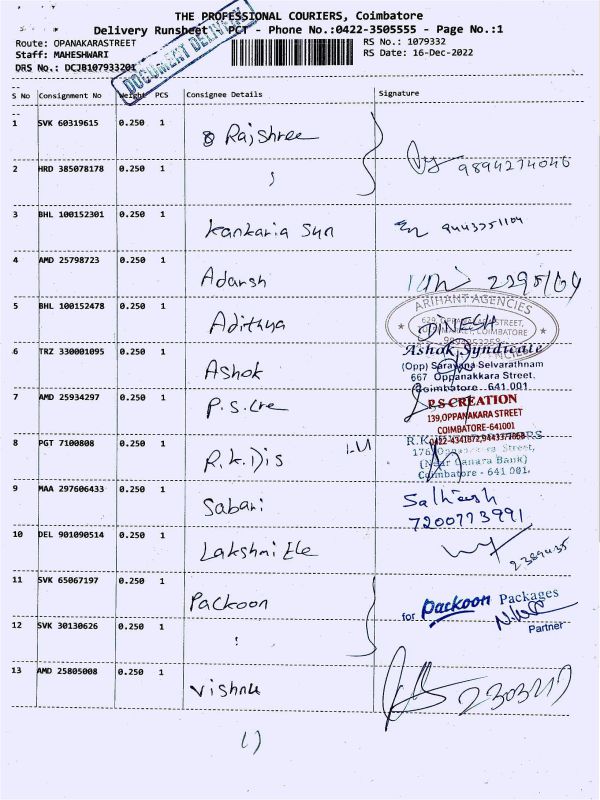 THE PROFESSIONAL COURIERS, Coimbatore
Delivery Runsheet PCT - Phone No.:0422-3505555 - Page No.:1
Route: OPANAKARASTREET RS No.: 1079332
Staff: MAHESHWARI RS Date: 16-Dec-2022
DRS No.: DCJB107933201
DOCUMENT DELIVERY
S No Consignment No Weight PCS Consignee Details Signature
1 SVK 60319615 0.250 1 Rajshree
2 HRD 385078178 0.250 1 9894274046
3 BHL 100152301 0.250 1 Kankaria Sun 9443751104
4 AMD 25798723 0.250 1 Adarsh
5 BHL 100152478 0.250 1 Adithya
ARIHANT AGENCIES
DINESH
6 TRZ 330001095 0.250 1 Ashok
Ashok Syndicate
(Opp) Sarayana Selvarathnam
667 Oppanakkara Street,
Coimbatore 641 001
7 AMD 25934297 0.250 1 P.S.Cre
P.S CREATION
139,OPPANAKARA STREET
COIMBATORE-641001
8 PGT 7100808 0.250 1 R.K.Dis
(Near Canara Bank)
Coimbatore - 641 001.
9 MAA 297606433 0.250 1 Sabari
7200773991
10 DEL 901090514 0.250 1 Lakshmi Ele 2389435
11 SVK 65067197 0.250 1 Packoon
for Packoon Packages
Partner
12 SVK 30130626 0.250 1
13 AMD 25805008 0.250 1 Vishnu